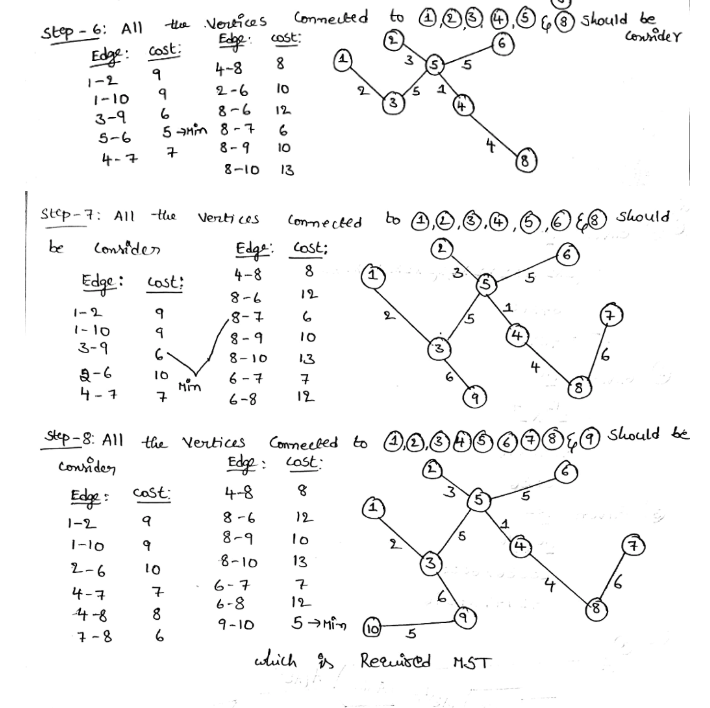 Step-6: All the Vertices Connected to ①,②,③,④,⑤ & ⑧ should be
Consider
Edge: Cost: Edge: Cost:
1-2 9 4-8 8
1-10 9 2-6 10
3-9 6 8-6 12
5-6 5 → Min 8-7 6
4-7 7 8-9 10
8-10 13
1 2 3 4 5 6 8
2 3 5 5 1 4
Step-7: All the Vertices Connected to ①,②,③,④,⑤,⑥ & ⑧ should
be Consider
Edge: Cost: Edge: Cost:
1-2 9 4-8 8
1-10 9 8-6 12
3-9 6 8-7 6
2-6 10 8-9 10
4-7 7 8-10 13
Min 6-7 7
6-8 12
1 2 3 4 5 6 7 8 9
2 3 5 5 1 4 6 6
Step-8: All the Vertices Connected to ①,②,③④⑤⑥⑦⑧ & ⑨ should be
Consider
Edge: Cost: Edge: Cost:
1-2 9 4-8 8
1-10 9 8-6 12
2-6 10 8-9 10
4-7 7 8-10 13
4-8 8 6-7 7
7-8 6 6-8 12
9-10 5 → Min
1 2 3 4 5 6 7 8 9 10
2 3 5 5 1 4 6 6 5
which is Required MST